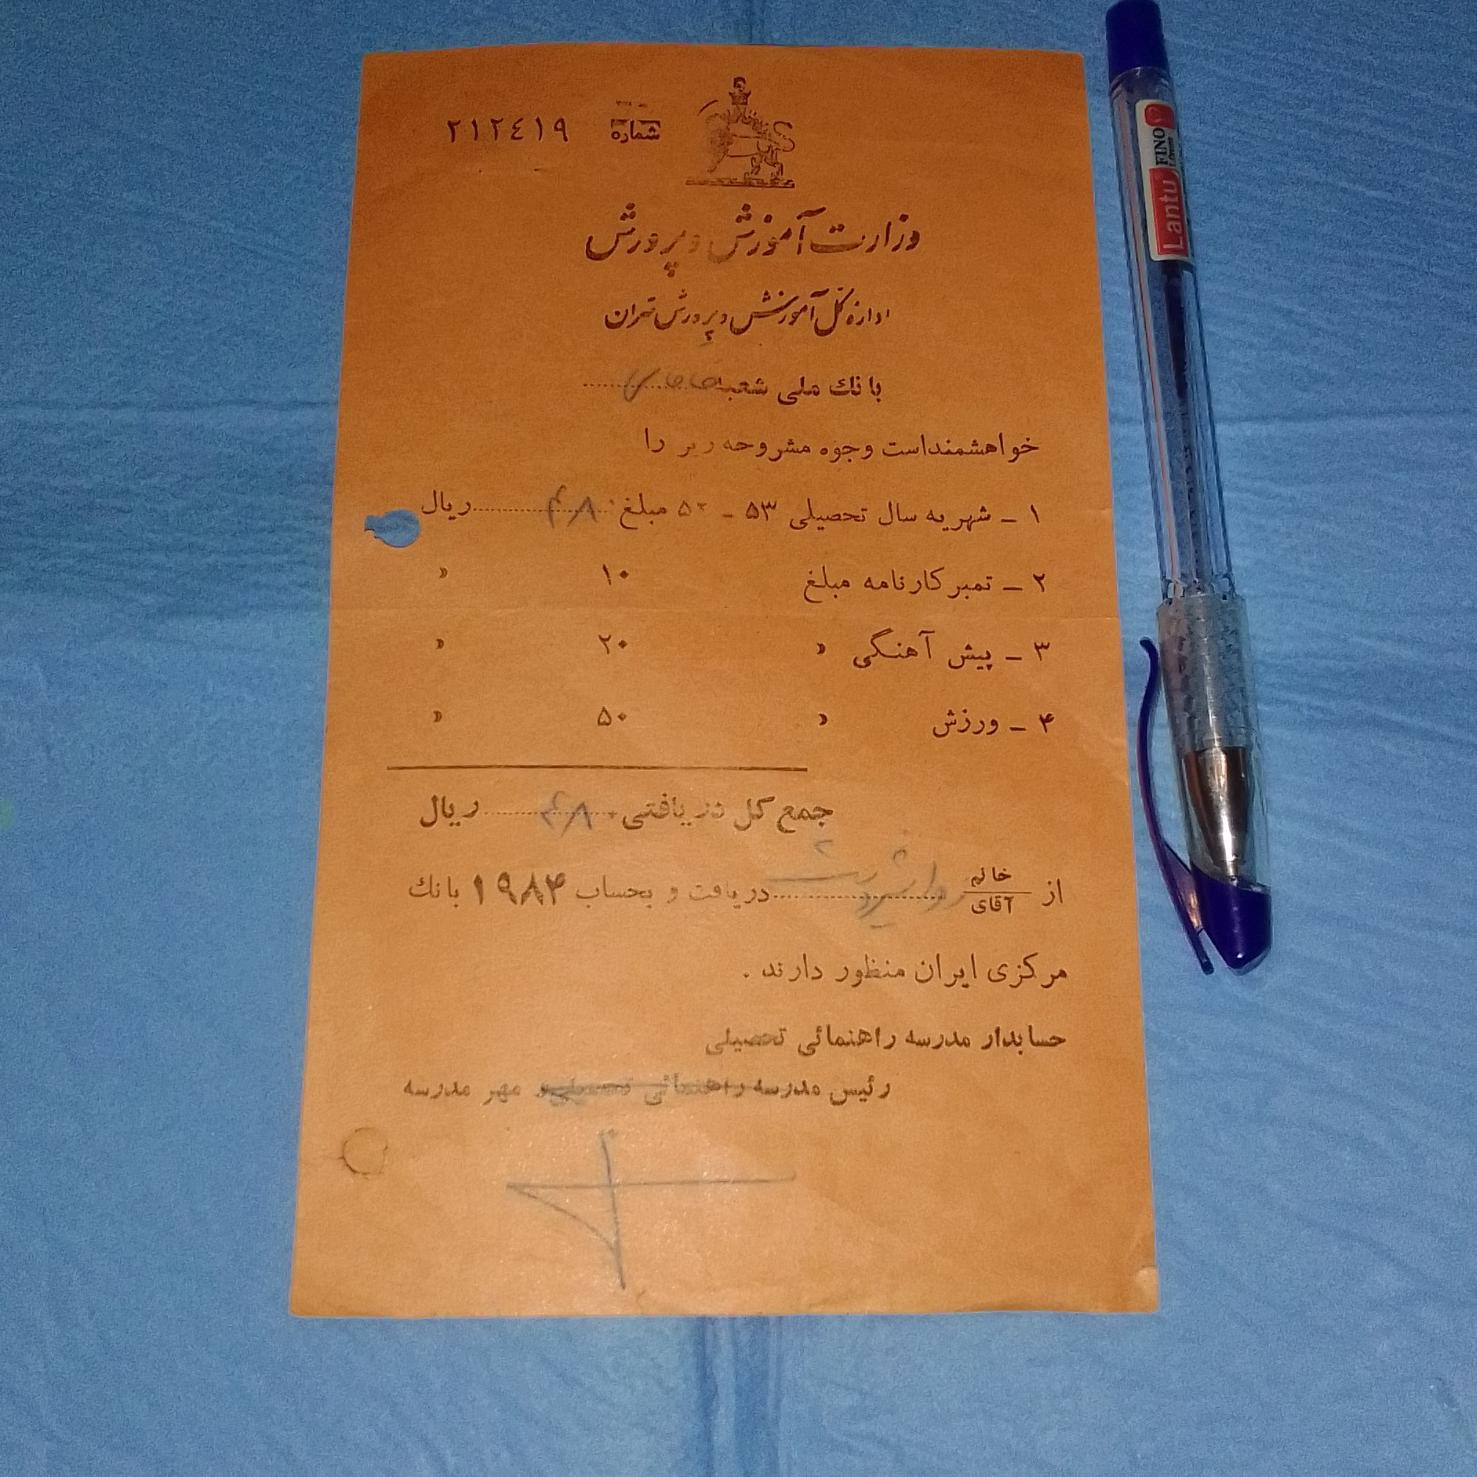 شماره ۲۱۲٤۱۹
وزارت آموزش و پرورش
اداره کل آموزش و پرورش تهران
بانك ملی شعبه
خواهشمنداست وجوه مشروحه زیر را
۱ ـ شهریه سال تحصیلی ۵۳ ـ ۵۲ مبلغ ریال
۲ ـ تمبر کارنامه مبلغ ۱۰ »
۳ ـ پیش آهنگی » ۲۰ »
۴ ـ ورزش » ۵۰ »
جمع کل دریافتی ریال
از خانم آقای دریافت و بحساب ۱۹۸۴ بانك
مرکزی ایران منظور دارند .
حسابدار مدرسه راهنمائی تحصیلی
رئیس مدرسه راهنمائی تحصیلی مهر مدرسه
Lantu
FINO